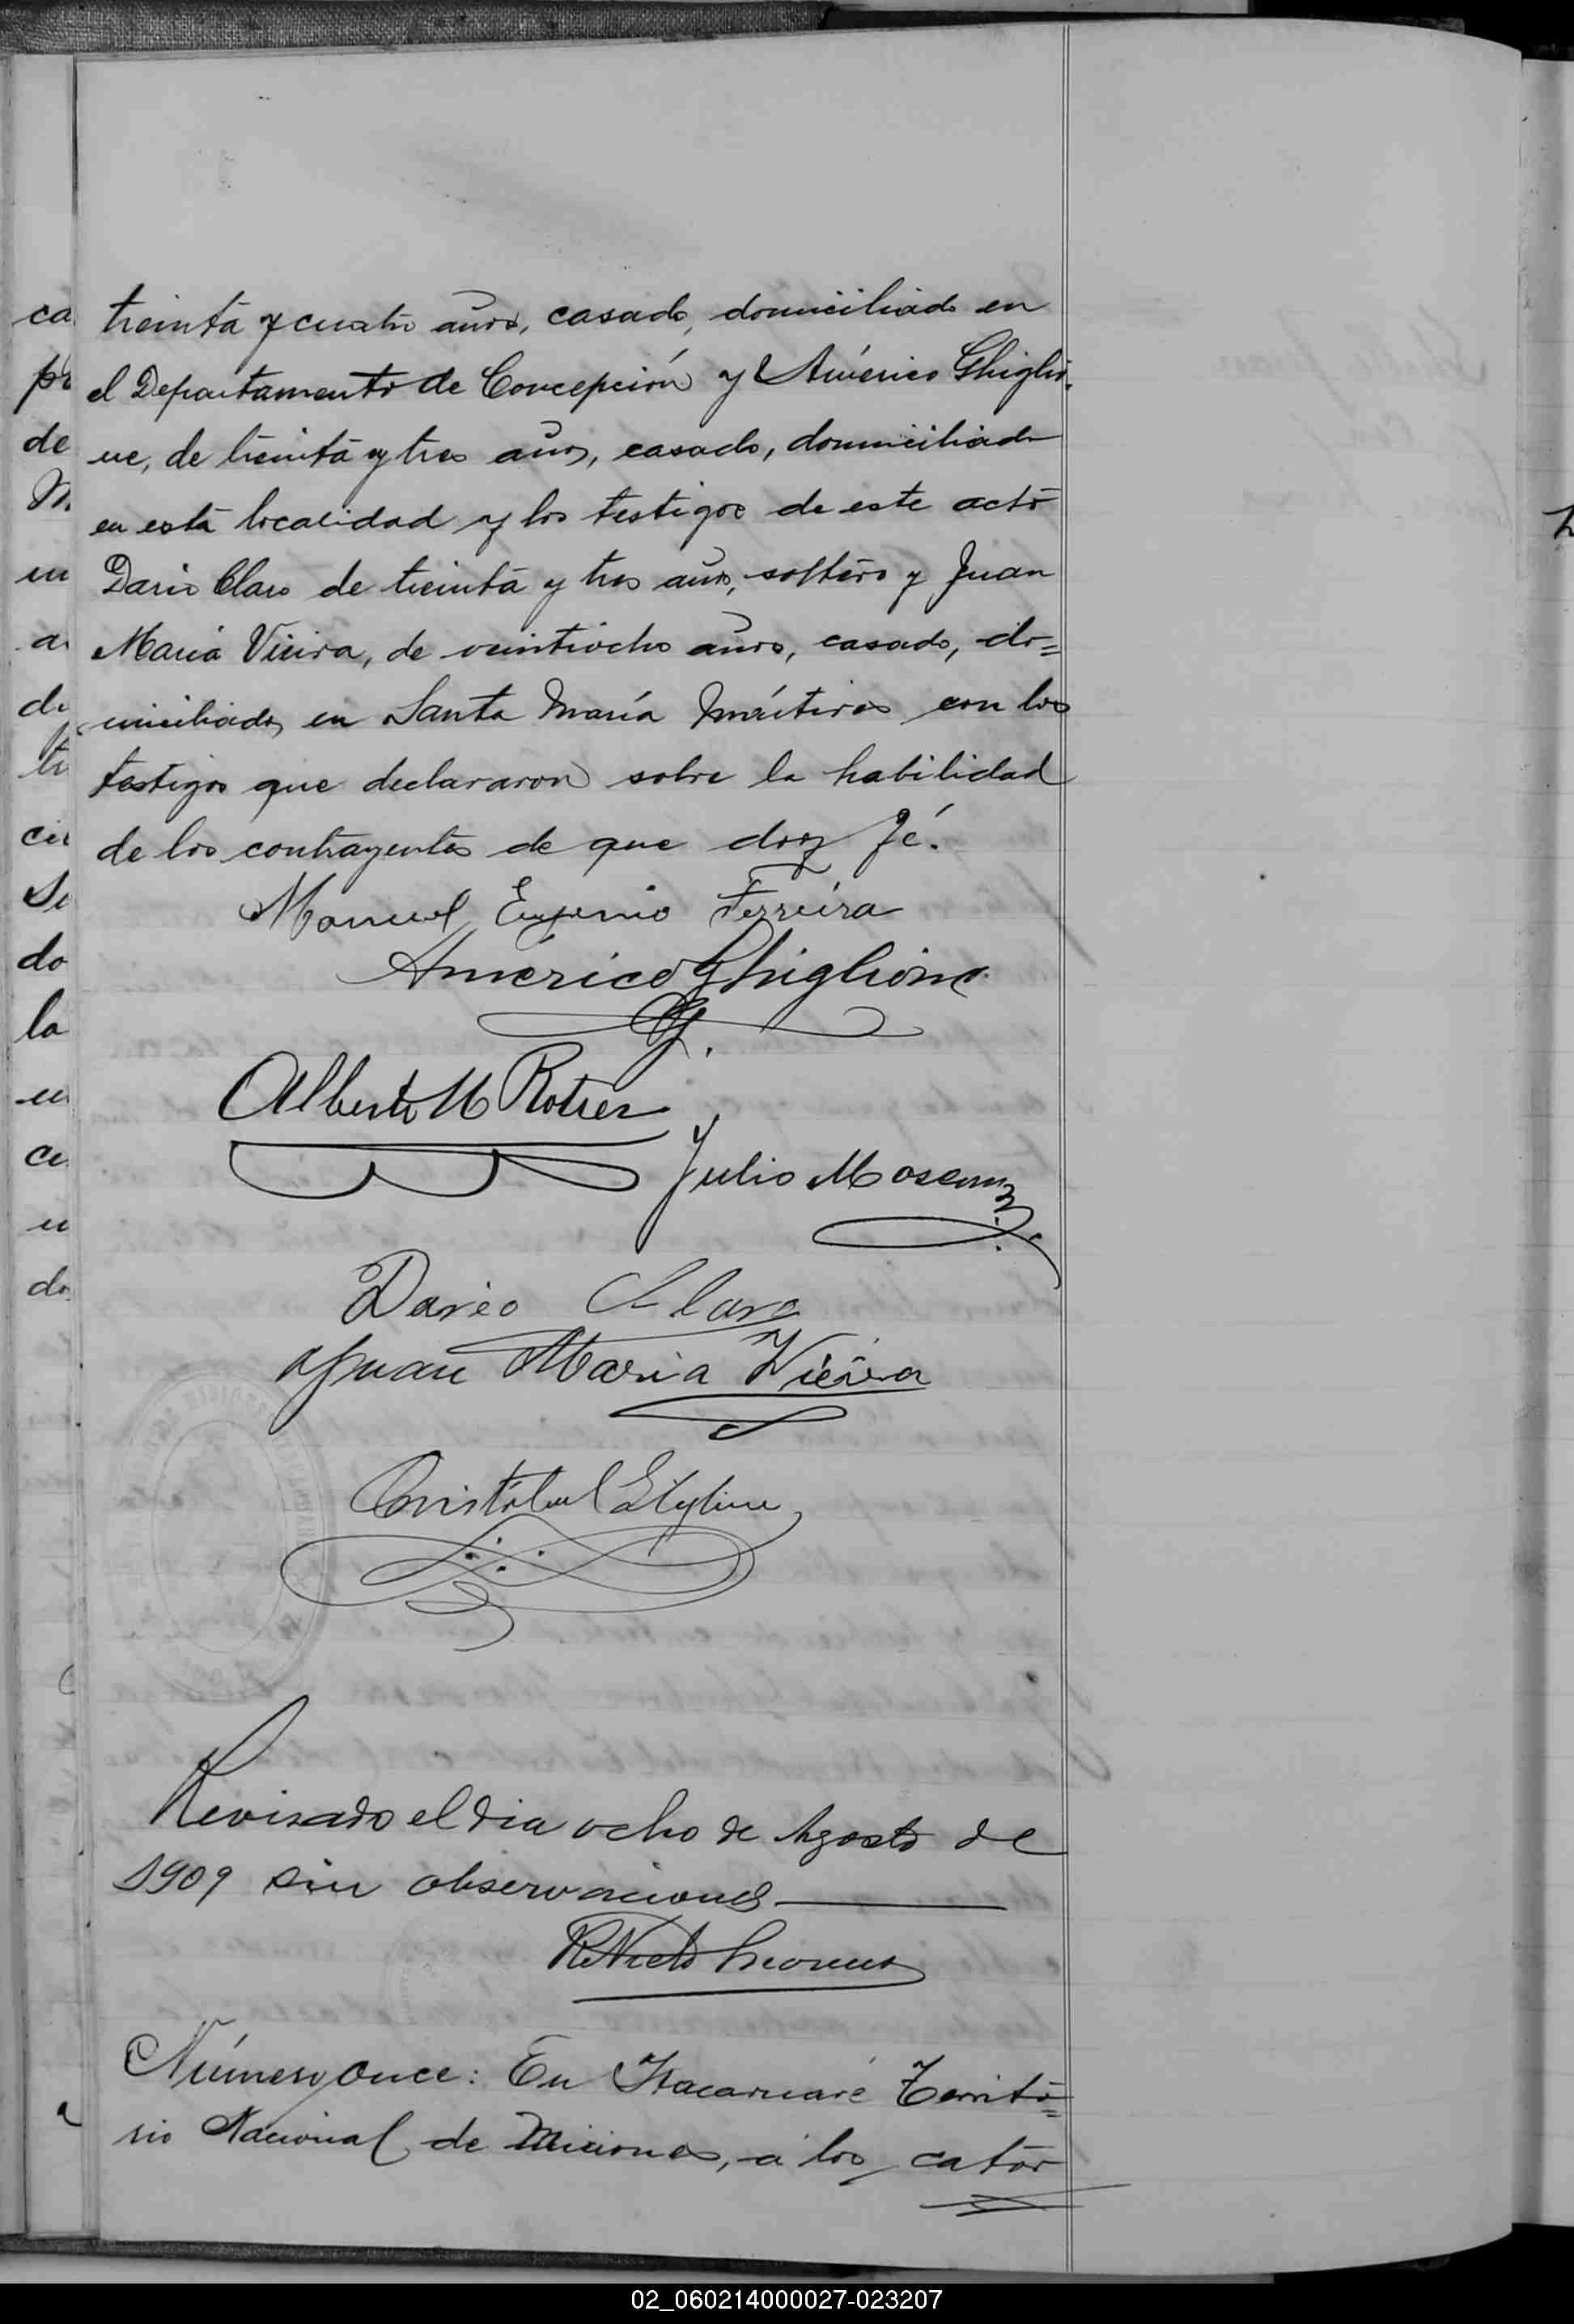 treinta y cuatro años, casado, domiciliado en
el Departamento de Concepción y Américo Ghiglio-
ne, de treinta y tres años, casado, domiciliado
en esta localidad y los testigos de este acto
Dario Claro de treinta y tres años, soltero y Juan
Maria Vieira, de veintiocho años, casado, do=
miciliados en Santa María Mártires con los
testigos que declararon sobre la habilidad
de los contrayentes de que doy fé.
Manuel Eugenio Ferreira
Américo Ghiglione
G.
Alberto M
Julio
Dario Claro
Juan Maria Vieira
Cristobal
Revisado el dia ocho de Agosto de
1909 sin observaciones
R Nieto
Número once: En Itacaruaré Territo=
rio Nacional de Misiones, a los cator
ca
pr
de
M
en
a
do
la
en
ce
do
02_060214000027-023207